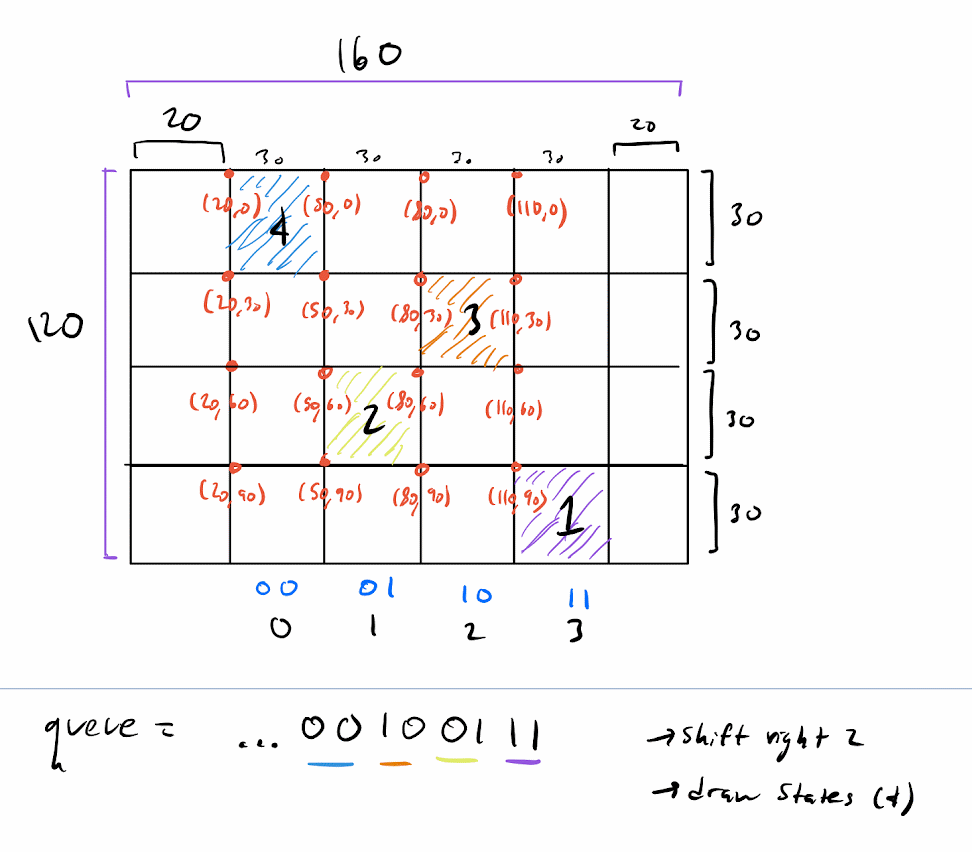 160
20 20
30 30 30 30
(20,0) (50,0) (80,0) (110,0) 30
4
(20,30) (50,30) (80,30) 3 (110,30) 30
120
(20,60) (50,60) 2 (80,60) (110,60) 30
(20,90) (50,90) (80,90) (110,90) 1 30
00 01 10 11
0 1 2 3
queue = ... 00 10 01 11 → shift right 2
→ draw states (4)